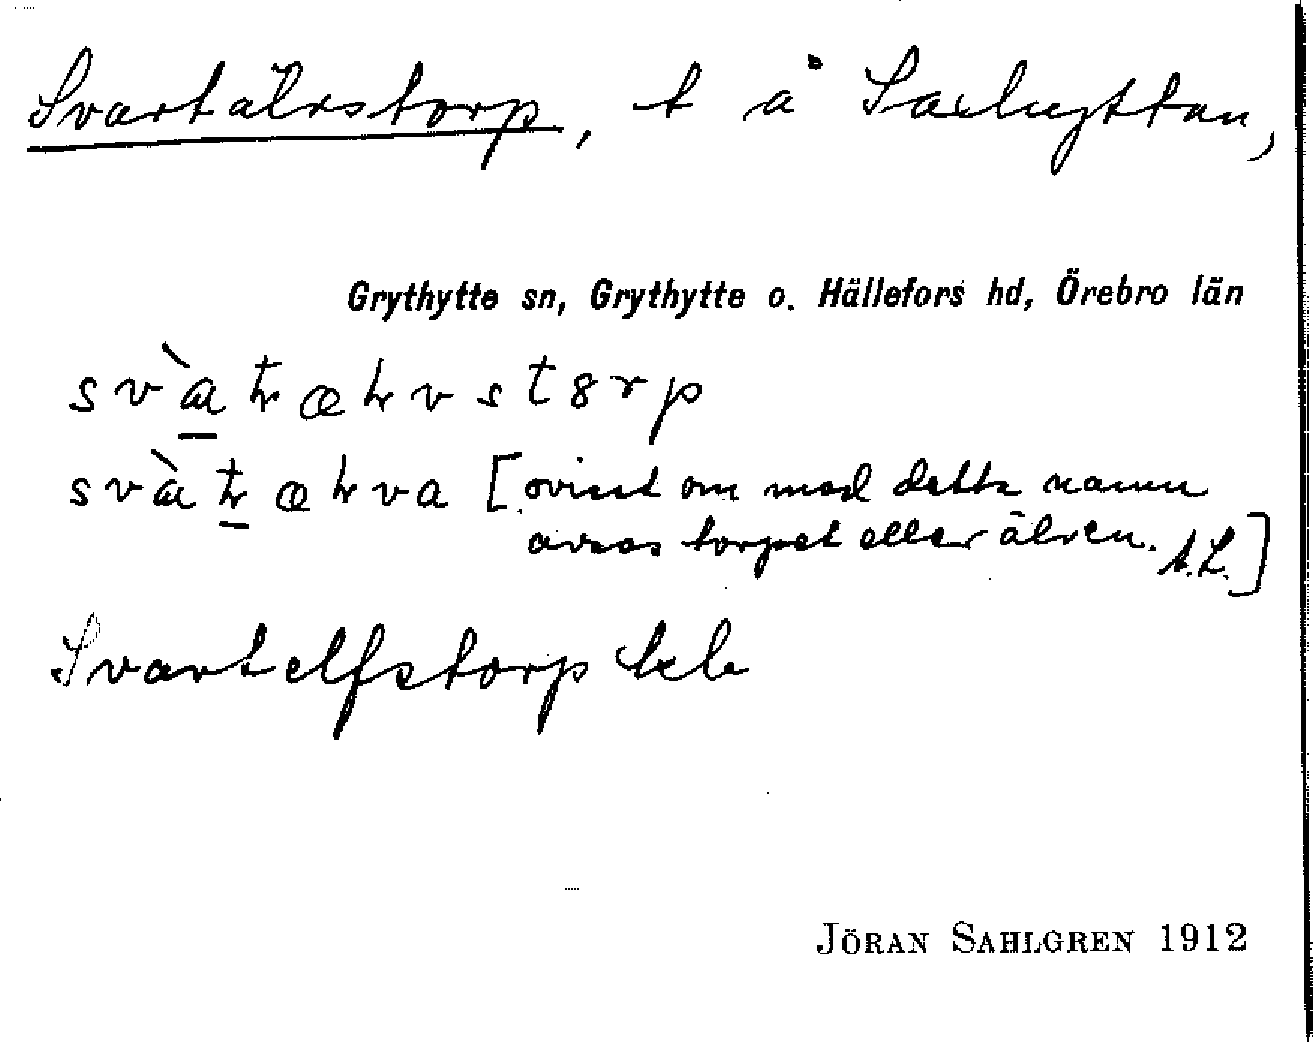 Svartälvstorp, t å Saxhyttan,
Grythytte sn, Grythytte o. Hällefors hd, Örebro län
[ovisst om med detta namn
avses torpet eller älven. A.L.]
Svartelfstorp
JÖRAN SAHLGREN 1912